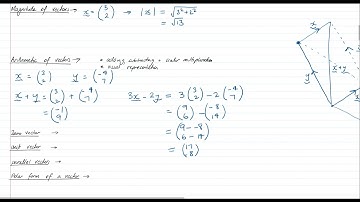 Magnitude of vectors → x = (3 2) → |x| = √(3² + 2²)
= √13
Arithmetic of vectors → • adding, subtracting + scalar multiplication
• visual representation
x = (3 2) y = (-4 7)
x + y = (3 2) + (-4 7)
= (-1 9)
3x - 2y = 3(3 2) - 2(-4 7)
= (9 6) - (-8 14)
= (9 - -8 6 - 14)
= (17 -8)
x
y
x+y
Zero vector →
unit vector →
parallel vectors →
Polar form of a vector →